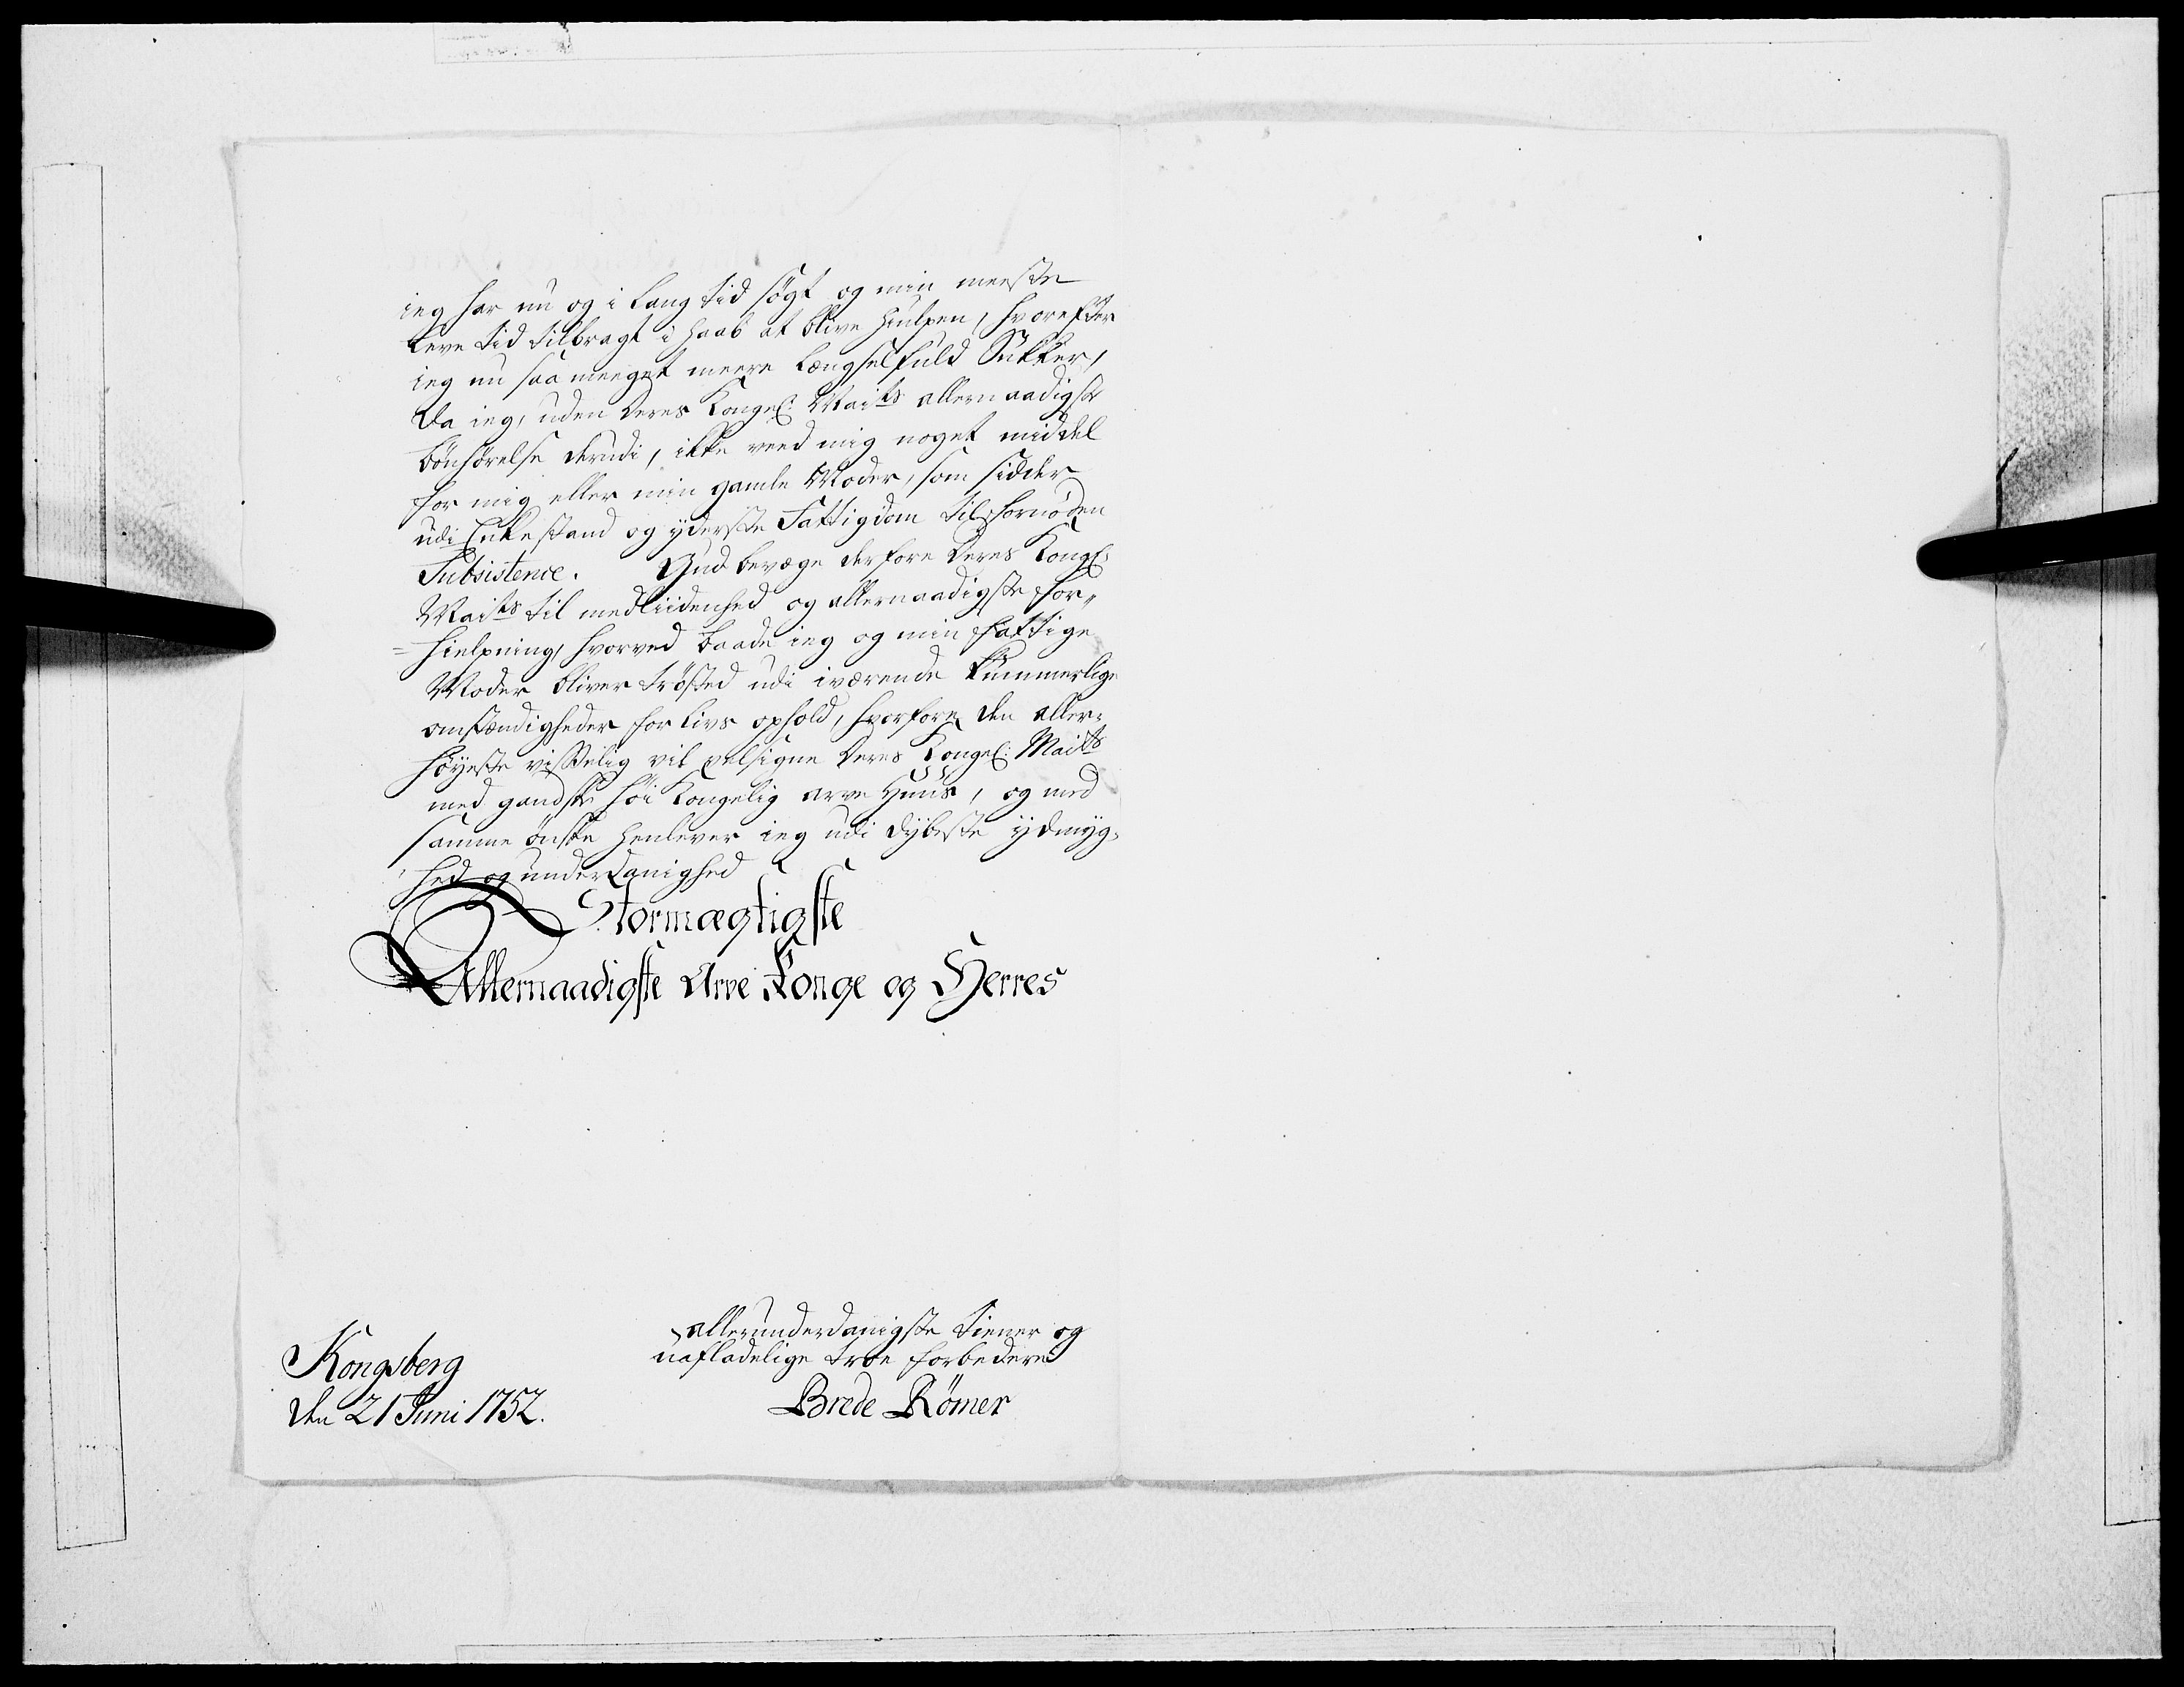 ieg har nu og i lang tid søgt og min meeste
leve tid tilbragt i haab at blive hiulpen, hvorefter
ieg nu saa meeget meere længselfuld Sukker,
da ieg, uden Deres Kongel: Maits allernaadigste
bønhørelse derudi, ikke veed mig noget middel
for mig eller min gamle Moder, som sidder
udi Enkestand og yderste Fattigdom til fornøden
Subsistence. Gud bevæge derfore Deres Kongl:
Maits til medliidenhed og allernaadigste for„
=hielpning, hvorved baade ieg og min fattige
Moder bliver trøsted udi iværende kummerlige
omstændigheder for livs ophold, hvorfore den aller=
høyeste visselig vil velsigne Deres Kongel: Maits
med gandske høi Kongelig arve Huus, og med
samme ønske henlever ieg udi dybeste ydmyg=
hed og underdanighed
Stormægtigste
Allernaadigste Arve Konge og Herres
allerunderdanigste tiener og
uafladelige troe forbedere
Brede Römer
Kongsberg
den 21 Juni 1752.